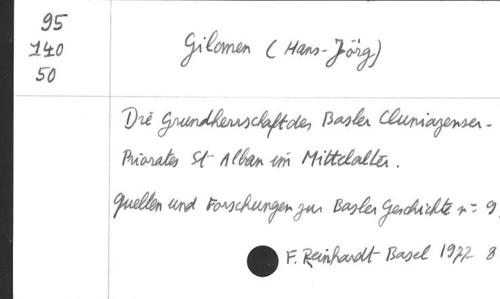 95
140
50
Gilomen (Hans-Jörg)
Die Grundherrschaft des Basler Cluniazenser-
Priorates St Alban im Mittelalter.
Quellen und Forschungen zur Basler Geschichte n= 9
F. Reinhardt Basel 1977 8